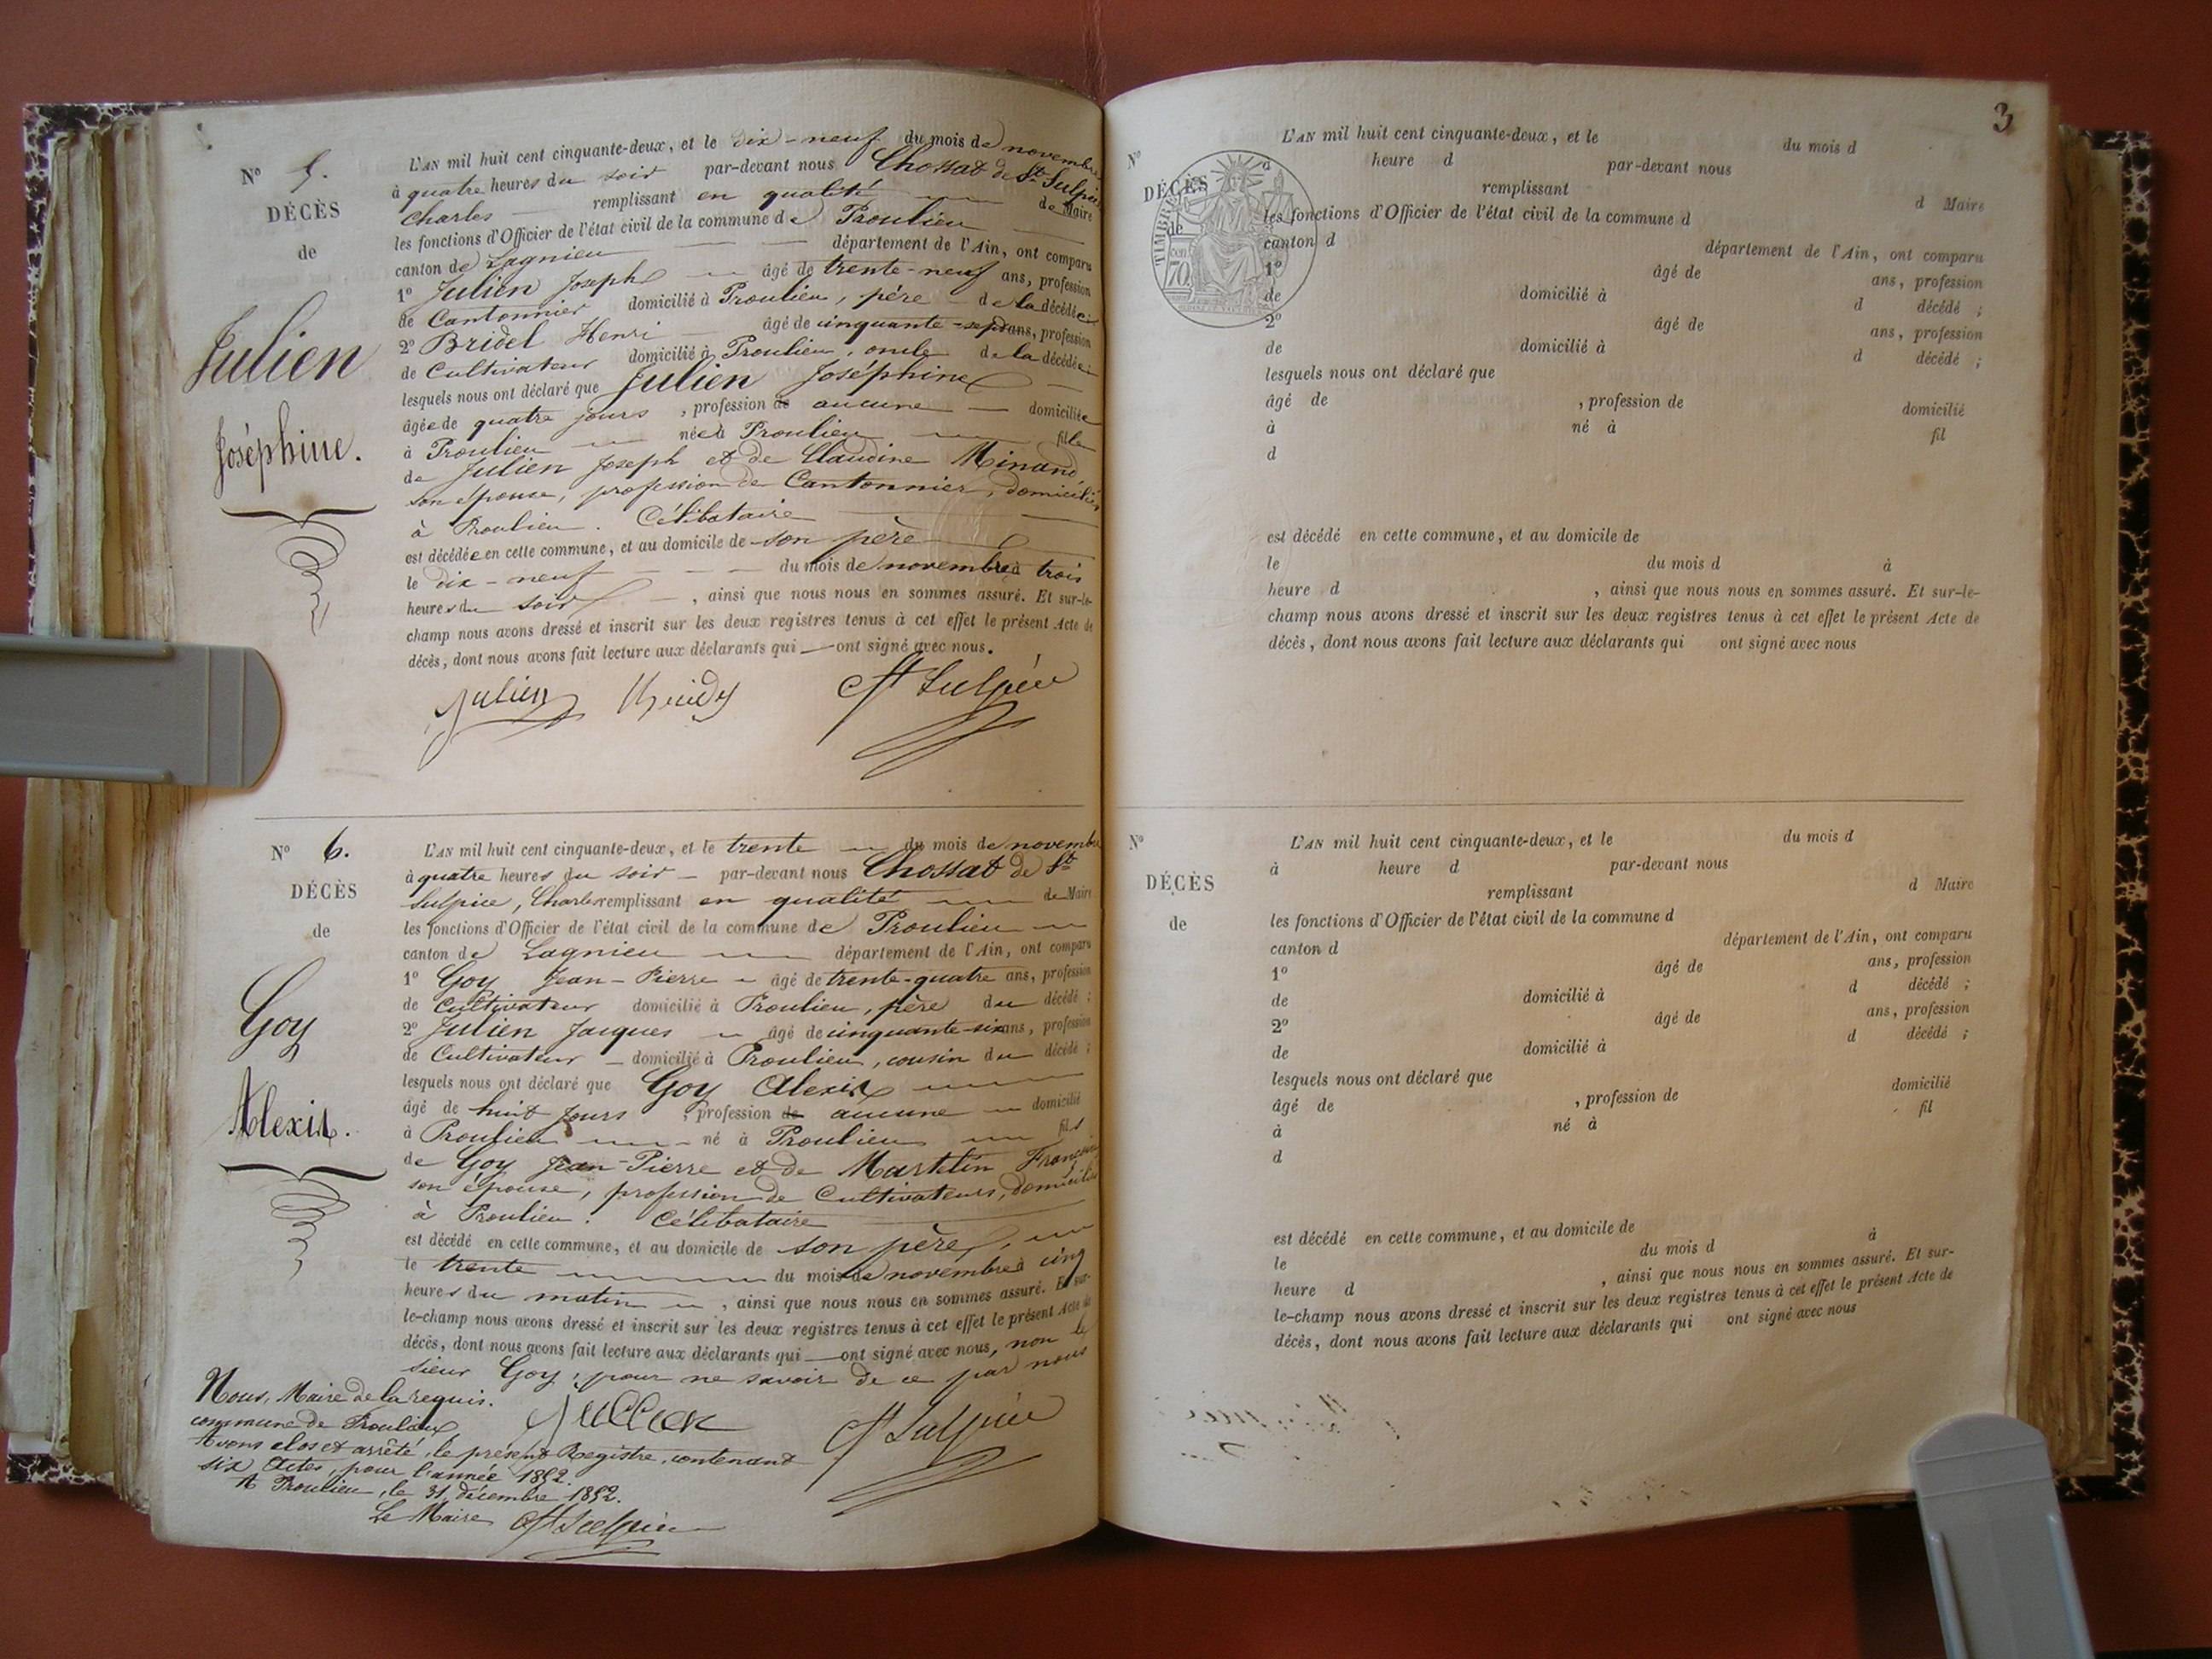 N° 5.
DÉCÈS
de
Julien
Joséphine.
L'AN mil huit cent cinquante-deux, et le dix-neuf du mois de novembre
à quatre heures du soir par-devant nous Chossat de St Sulpice
Charles remplissant en qualité de Maire
les fonctions d'Officier de l'état civil de la commune de Proulieu
canton de Lagnieu département de l'Ain, ont comparu
1° Julien Joseph âgé de trente-neuf ans, profession
de Cantonnier domicilié à Proulieu, père de la décédée;
2° Bridel Henri âgé de cinquante-sept ans, profession
de Cultivateur domicilié à Proulieu, oncle de la décédée;
lesquels nous ont déclaré que Julien Joséphine
âgée de quatre jours, profession de aucune domiciliée
à Proulieu née à Proulieu fille
de Julien Joseph et de Claudine Minand
son épouse, profession de Cantonnier, domiciliés
à Proulieu. Célibataire
est décédée en cette commune, et au domicile de son père
le dix-neuf du mois de novembre à trois
heures du soir, ainsi que nous nous en sommes assuré. Et sur-le-
champ nous avons dressé et inscrit sur les deux registres tenus à cet effet le présent Acte de
décès, dont nous avons fait lecture aux déclarants qui ont signé avec nous.
Julien St Sulpice
N° 6.
DÉCÈS
de
Goy
Alexis.
L'AN mil huit cent cinquante-deux, et le trente du mois de novembre
à quatre heures du soir par-devant nous Chossat de St
Sulpice, Charles remplissant en qualité de Maire
les fonctions d'Officier de l'état civil de la commune de Proulieu
canton de Lagnieu département de l'Ain, ont comparu
1° Goy Jean-Pierre âgé de trente-quatre ans, profession
de Cultivateur domicilié à Proulieu, père du décédé;
2° Julien Jacques âgé de cinquante-six ans, profession
de Cultivateur domicilié à Proulieu, cousin du décédé;
lesquels nous ont déclaré que Goy Alexis
âgé de huit jours, profession de aucune domicilié
à Proulieu né à Proulieu fils
de Goy Jean-Pierre et de Martelin
son épouse, profession de Cultivateurs, domiciliés
à Proulieu. Célibataire
est décédé en cette commune, et au domicile de son père,
le trente du mois de novembre à cinq
heures du matin, ainsi que nous nous en sommes assuré. Et sur-
le-champ nous avons dressé et inscrit sur les deux registres tenus à cet effet le présent Acte de
décès, dont nous avons fait lecture aux déclarants qui ont signé avec nous, non le
sieur Goy, pour ne savoir de ce par nous
requis.
Jullien St Sulpice
Nous, Maire de la
commune de Proulieu
Avons clos et arrêté, le présent Registre, contenant
six Actes, pour l'année 1852.
A Proulieu, le 31 décembre 1852.
Le Maire St Sulpice
3
N°
DÉCÈS
de
TIMBRE
70
L'AN mil huit cent cinquante-deux, et le du mois d
à heure d par-devant nous
remplissant d Maire
les fonctions d'Officier de l'état civil de la commune d
canton d département de l'Ain, ont comparu
1° âgé de ans, profession
de domicilié à d décédé ;
2° âgé de ans, profession
de domicilié à d décédé ;
lesquels nous ont déclaré que
âgé de , profession de domicilié
à né à fil
d
est décédé en cette commune, et au domicile de
le du mois d à
heure d , ainsi que nous nous en sommes assuré. Et sur-le-
champ nous avons dressé et inscrit sur les deux registres tenus à cet effet le présent Acte de
décès, dont nous avons fait lecture aux déclarants qui ont signé avec nous
N°
DÉCÈS
de
L'AN mil huit cent cinquante-deux, et le du mois d
à heure d par-devant nous
remplissant d Maire
les fonctions d'Officier de l'état civil de la commune d
canton d département de l'Ain, ont comparu
1° âgé de ans, profession
de domicilié à d décédé ;
2° âgé de ans, profession
de domicilié à d décédé ;
lesquels nous ont déclaré que
âgé de , profession de domicilié
à né à fil
d
est décédé en cette commune, et au domicile de
le du mois d à
heure d , ainsi que nous nous en sommes assuré. Et sur-
le-champ nous avons dressé et inscrit sur les deux registres tenus à cet effet le présent Acte de
décès, dont nous avons fait lecture aux déclarants qui ont signé avec nous